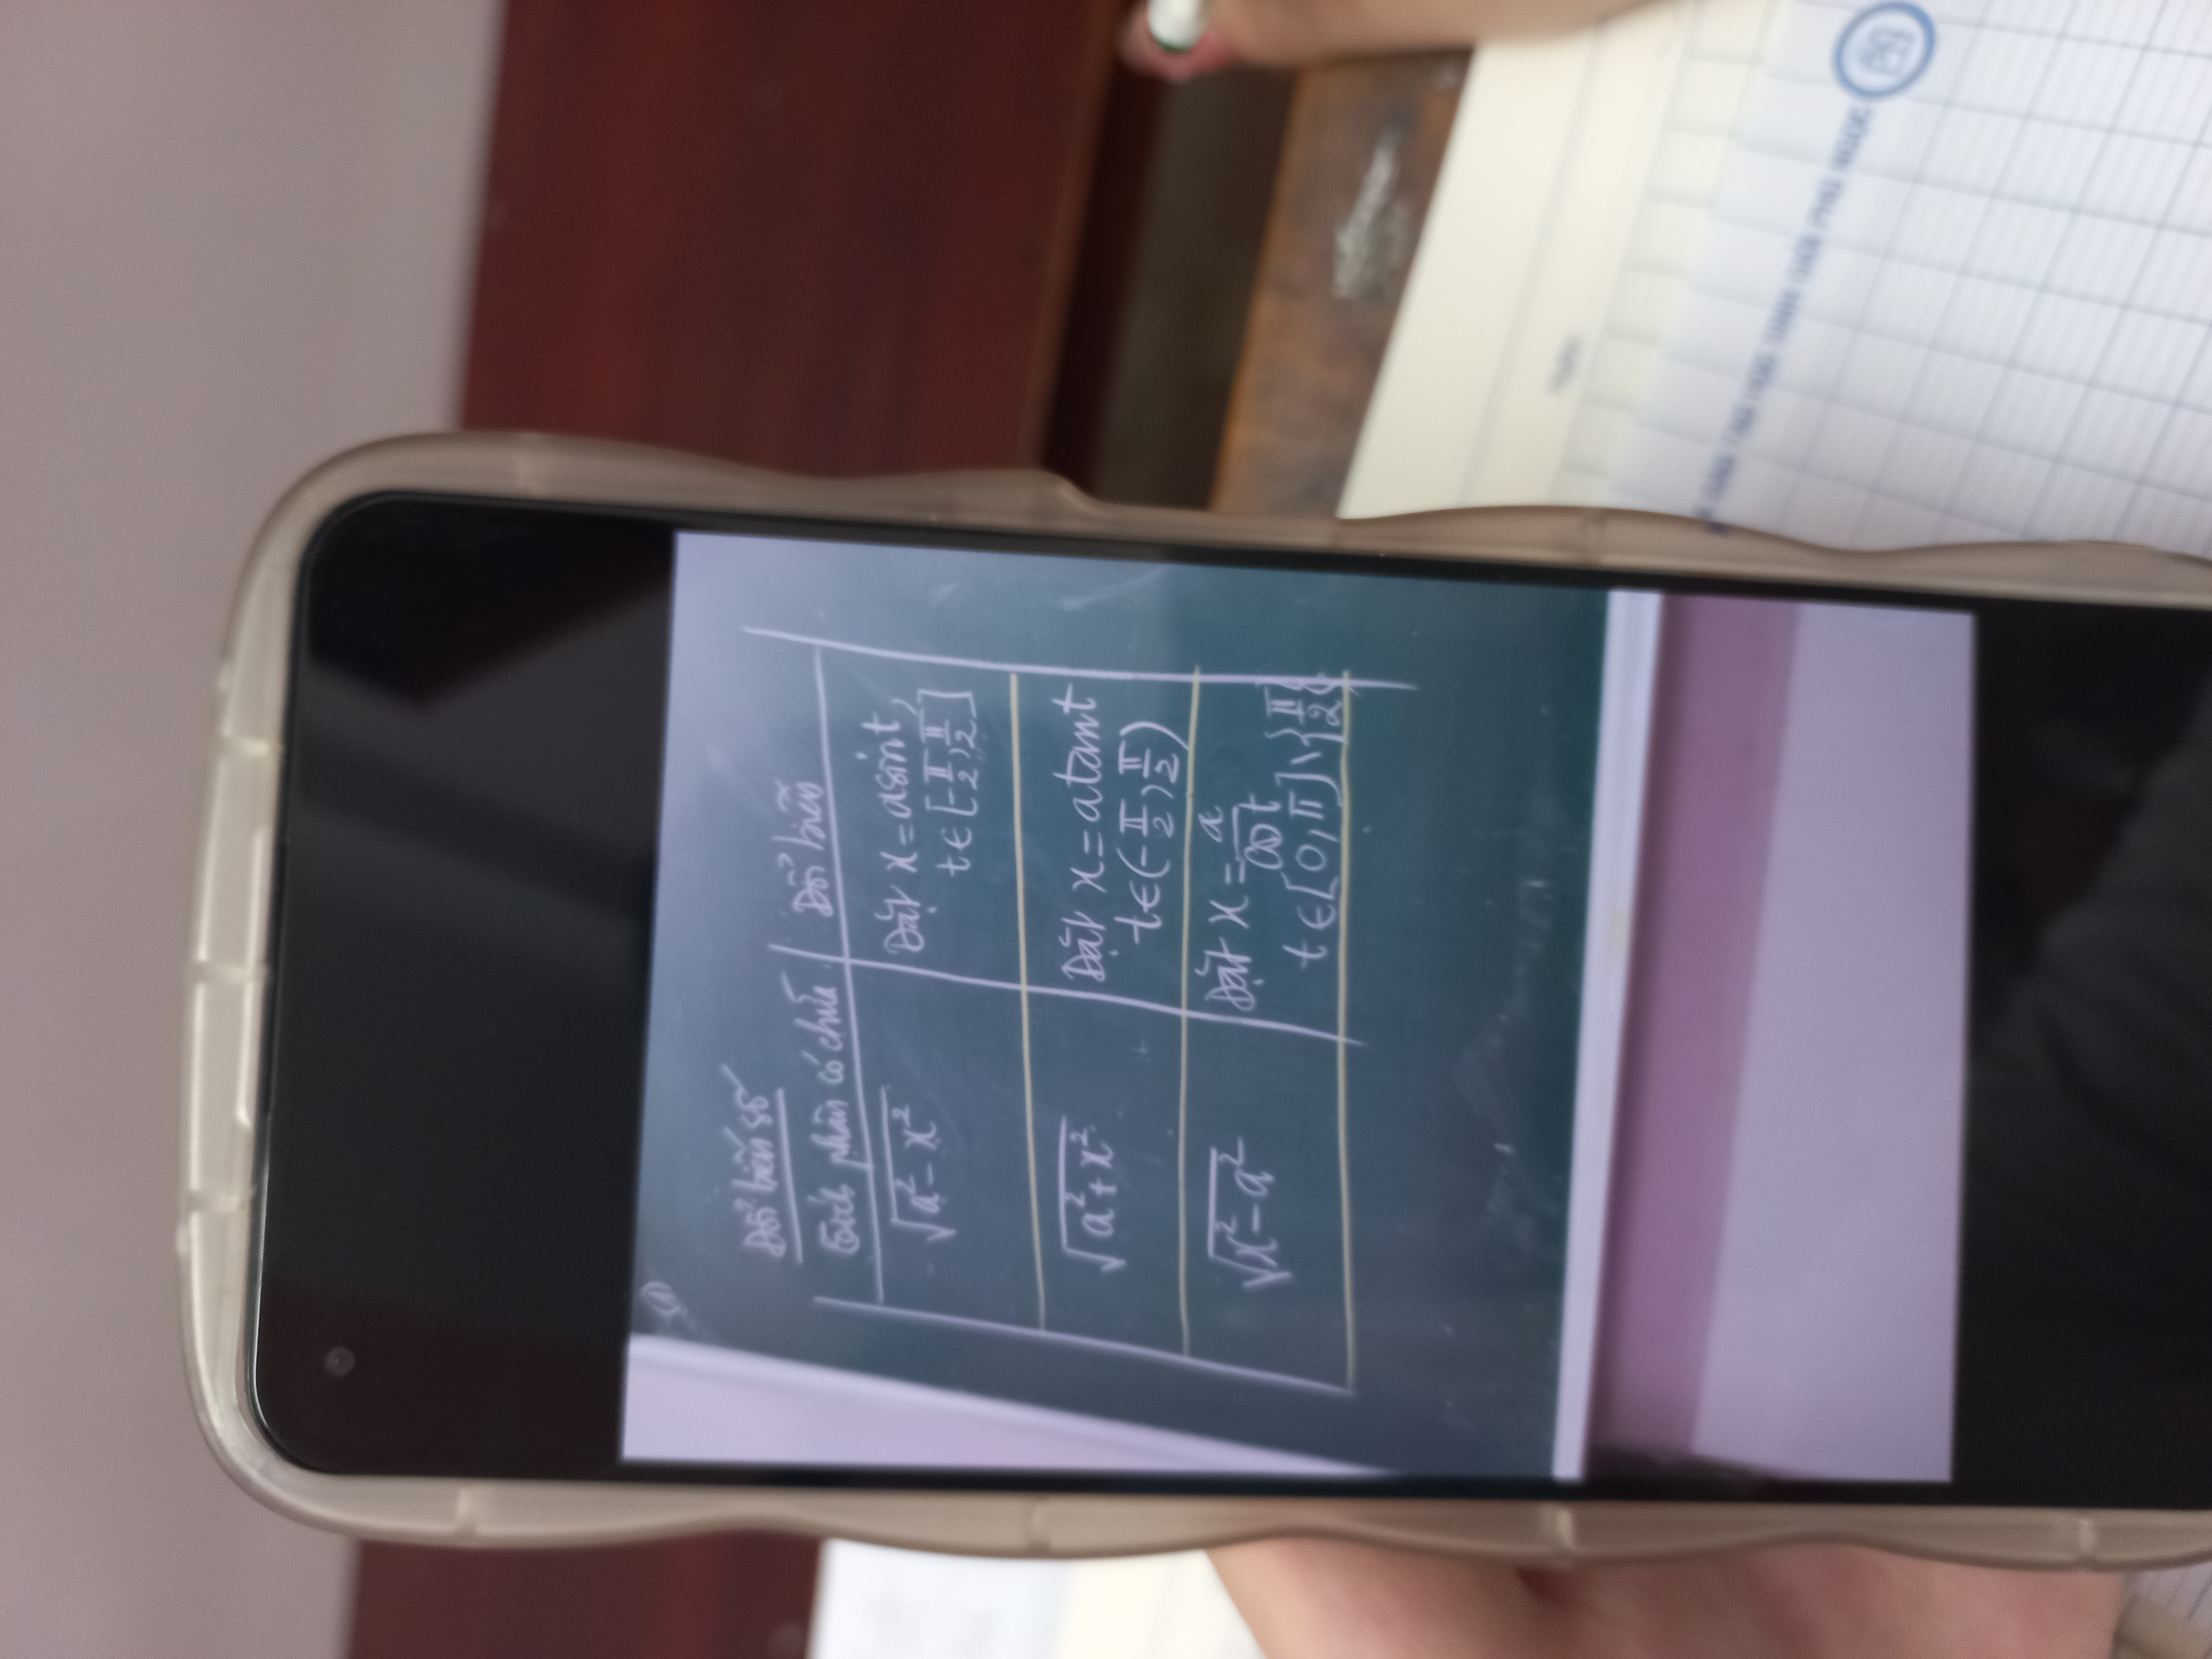 (1)
Đổi biến số
Tích phân có chứa | Đổi biến
√(a² - x²) | Đặt x = asint,
t ∈ [-π/2, π/2]
√(a² + x²) | Đặt x = atant
t ∈ (-π/2, π/2)
√(x² - a²) | Đặt x = a/cost
t ∈ [0, π] \ {π/2}
HỌC SINH GIỎI PHÚ NGỌC